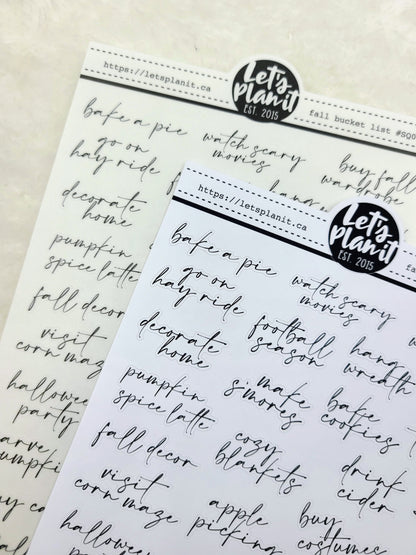 https://letsplanit.ca
Let's
Plan it
EST. 2015
fall bucket list #SQ0
bake a pie
watch scary
movies
buy fall
wardrobe
go on
hay ride
decorate
home
pumpkin
spice latte
fall decor
visit
corn maze
halloween
party
https://letsplanit.ca
Let's
Plan it
EST. 2015
bake a pie
watch scary
movies
go on
hay ride
football
season
hang
wreath
decorate
home
make
s'mores
bake
cookies
pumpkin
spice latte
cozy
blankets
drink
cider
fall decor
visit
corn maze
apple
picking
buy
costumes
halloween